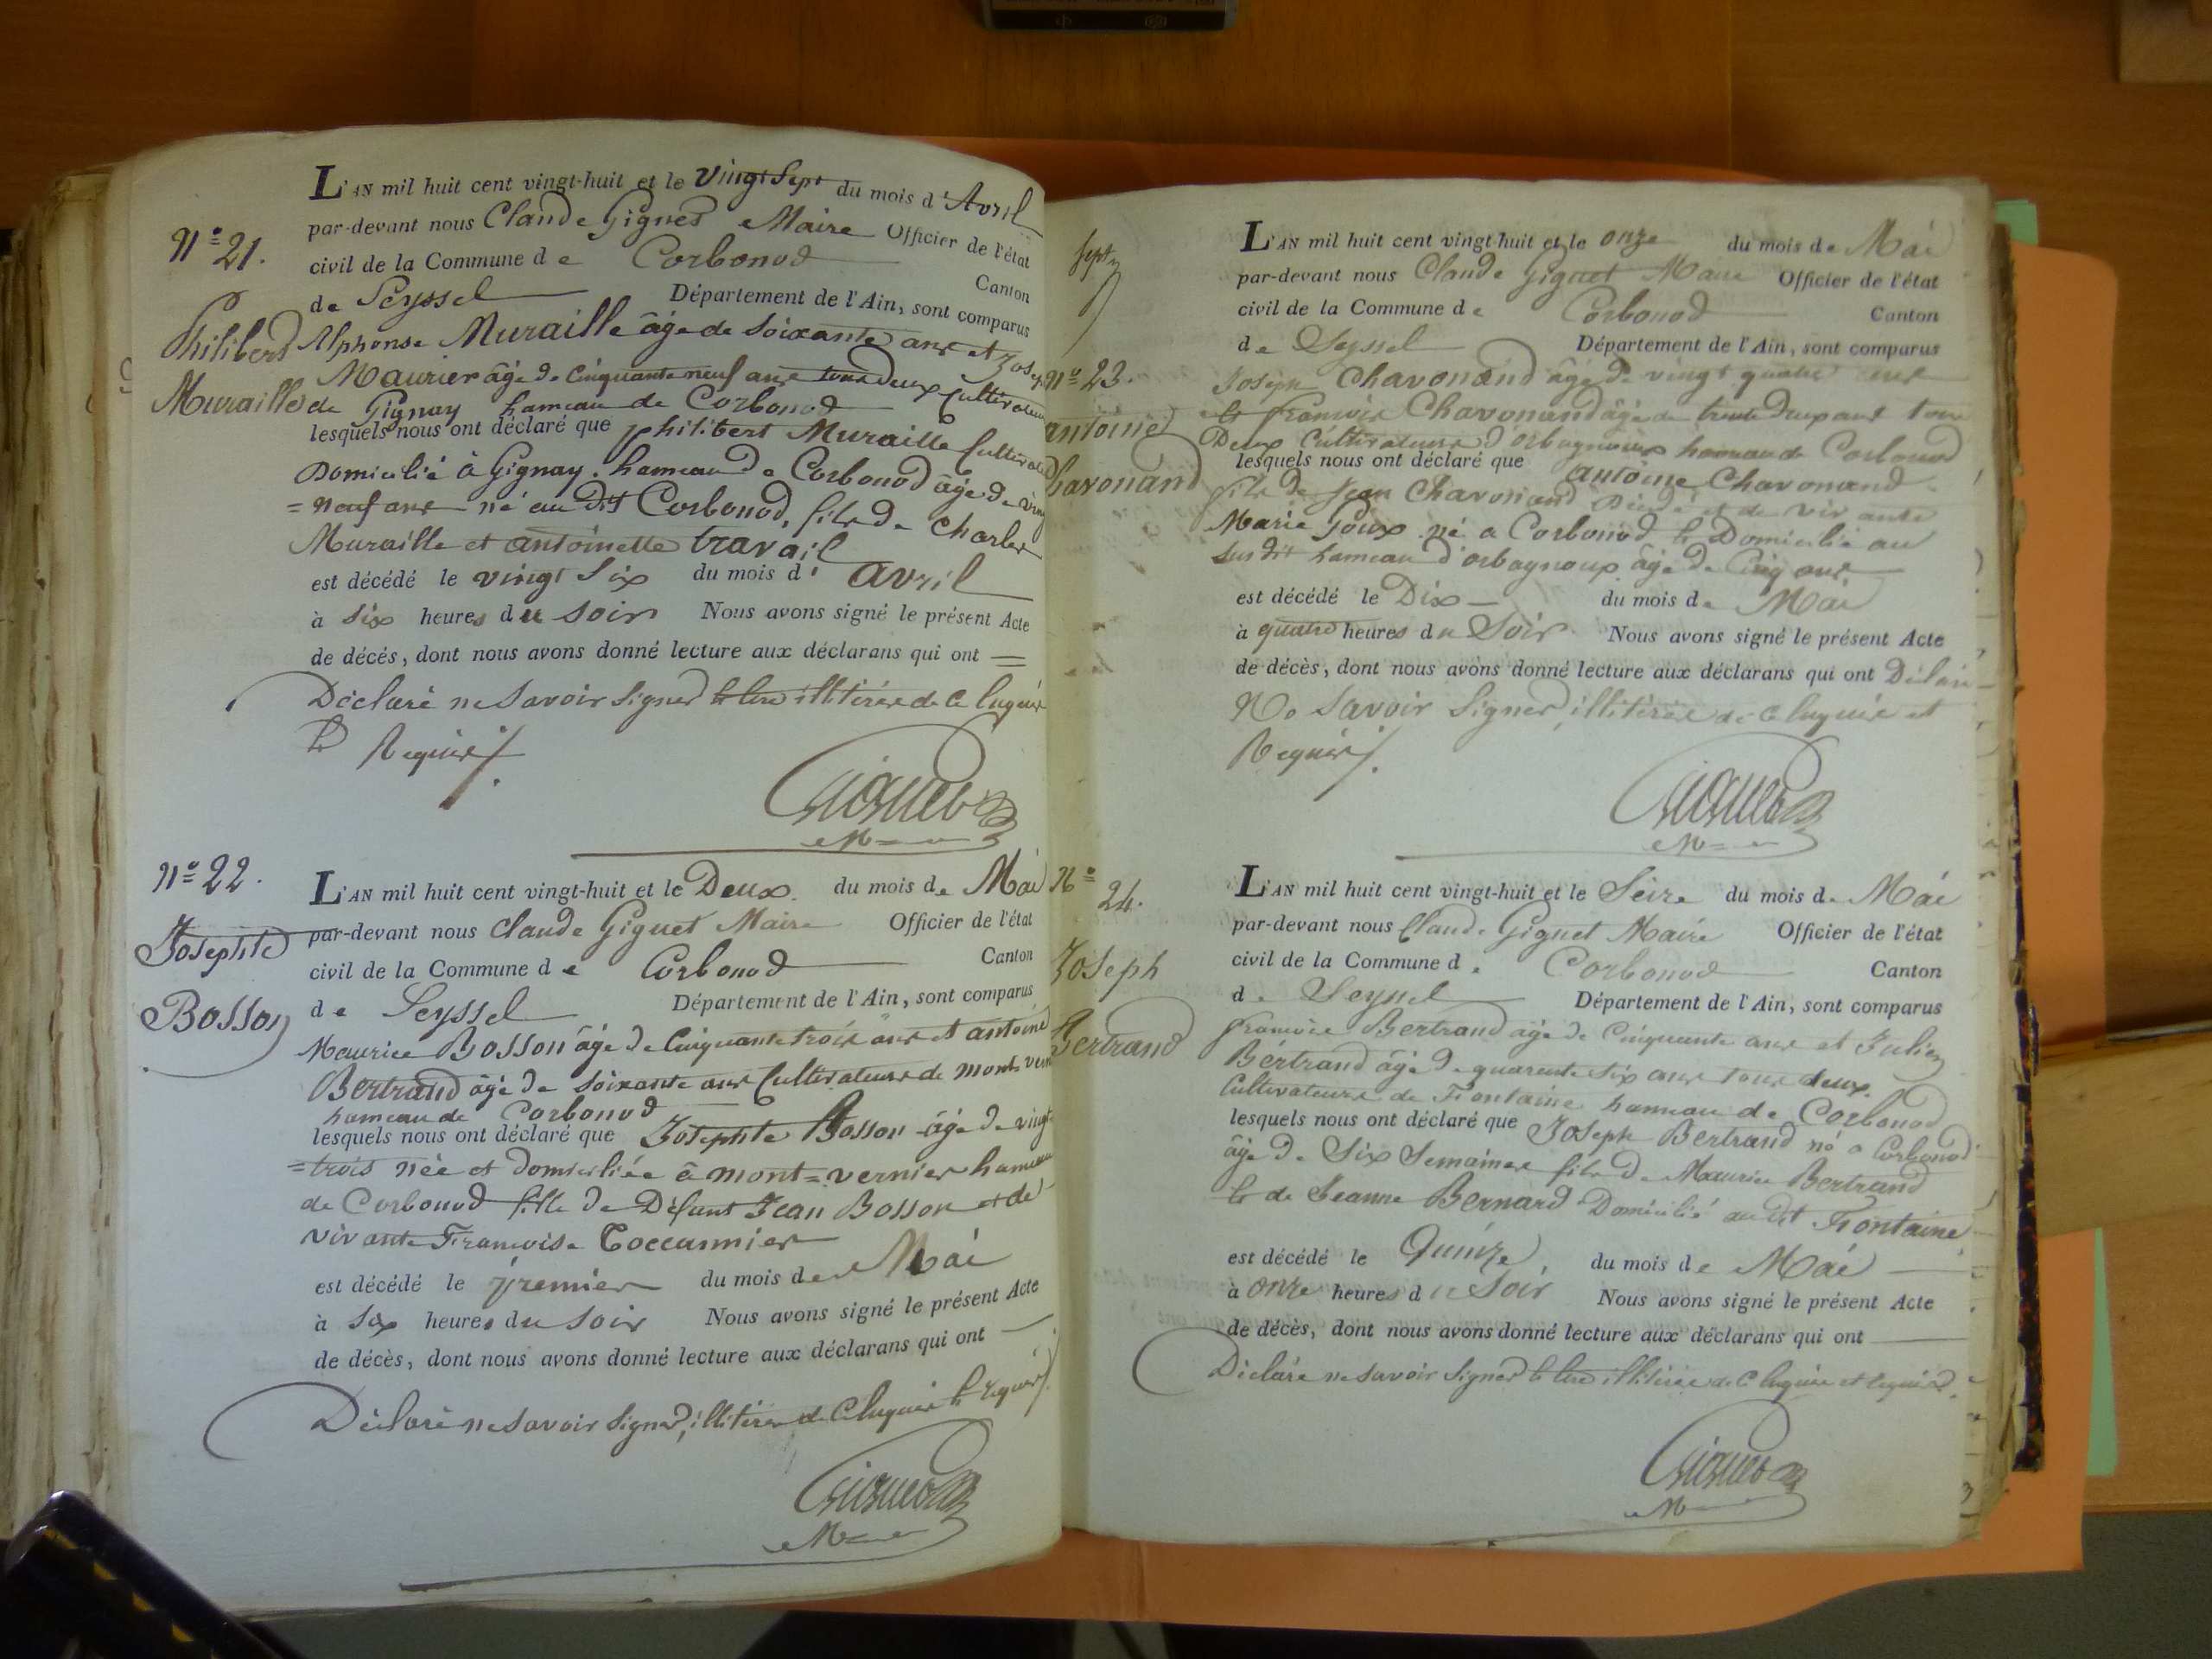 N.º 21.
Philibert
Muraille
L'AN mil huit cent vingt-huit et le vingt Sept du mois d'Avril
par-devant nous Claude Giguet Maire Officier de l'état
civil de la Commune de Corbonod Canton
de Seyssel Département de l'Ain, sont comparus
Alphonse Muraille âgé de Soixante ans et Joseph
Maurier âgé de Cinquante neuf ans tous deux Cultivateurs
de Gignay hameau de Corbonod
lesquels nous ont déclaré que philibert Muraille Cultivateur
Domicilié à Gignay hameau de Corbonod âgé de vingt
= neuf ans né au dit Corbonod, fils de Charles
Muraille et antoinette travail
est décédé le vingt Six du mois d'avril
à Six heures du Soir Nous avons signé le présent Acte
de décès, dont nous avons donné lecture aux déclarans qui ont
Déclaré ne Savoir Signer illitérés de ce
Requis
Giguet
M
N.º 22.
Josephte
Bosson
L'AN mil huit cent vingt-huit et le Deux du mois de Mai
par-devant nous Claude Giguet Maire Officier de l'état
civil de la Commune de Corbonod Canton
de Seyssel Département de l'Ain, sont comparus
Maurice Bosson âgé de Cinquante trois ans et antoine
Bertrand âgé de Soixante ans Cultivateurs de mont vernier
hameau de Corbonod
lesquels nous ont déclaré que Josephte Bosson âgé de vingt
= trois née et domiciliée à mont=vernier hameau
de Corbonod fille de Défunt Jean Bosson et de
vivante Françoise Coccunnier
est décédé le premier du mois de Mai
à Six heures du Soir Nous avons signé le présent Acte
de décès, dont nous avons donné lecture aux déclarans qui ont
Déclaré ne Savoir Signer, illitérés de ce requis
Giguet
M
N.º 23.
antoine
Chavonand
L'AN mil huit cent vingt-huit et le onze du mois de Mai
par-devant nous Claude Giguet Maire Officier de l'état
civil de la Commune de Corbonod Canton
de Seyssel Département de l'Ain, sont comparus
Joseph Chavonand âgé de vingt quatre ans
et François Chavonand âgé de trente Deux ans tous
Deux Cultivateurs d'orbagnoux hameau de Corbonod
lesquels nous ont déclaré que antoine Chavonand
fils de Jean Chavonand et de vivante
Marie Goux né a Corbonod et Domicilié au
Sus dit hameau d'orbagnoux âgé de Cinq ans
est décédé le Dix du mois de Mai
à quatre heures du Soir Nous avons signé le présent Acte
de décès, dont nous avons donné lecture aux déclarans qui ont Déclaré
Ne Savoir Signer, illitérés de ce et
Requis
Giguet
M
N.º 24.
Joseph
Bertrand
L'AN mil huit cent vingt-huit et le Seize du mois de Mai
par-devant nous Claude Giguet Maire Officier de l'état
civil de la Commune de Corbonod Canton
de Seyssel Département de l'Ain, sont comparus
françois Bertrand âgé de Cinquante ans et Julien
Bertrand âgé de quarente Six ans tous deux
Cultivateurs de Fontaine hameau de Corbonod
lesquels nous ont déclaré que Joseph Bertrand né a Corbonod
âgé de Six Semaines fils de Maurice Bertrand
et de Jeanne Bernard Domicilié au dit Fontaine
est décédé le Quinze du mois de Mai
à onze heures du Soir Nous avons signé le présent Acte
de décès, dont nous avons donné lecture aux déclarans qui ont
Déclaré ne Savoir Signer illitérés de ce et requis
Giguet
M